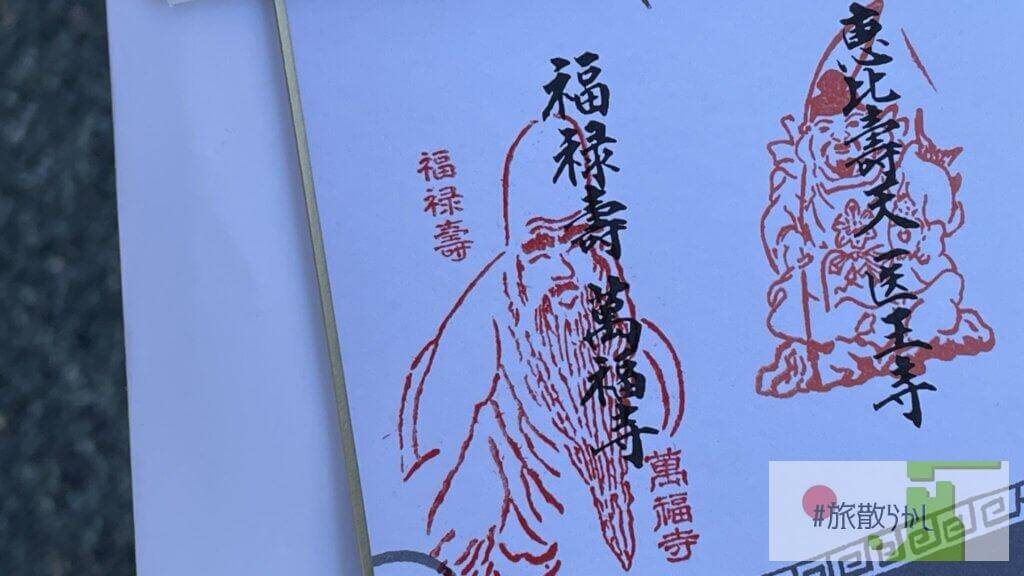 恵比壽天 医王寺
福禄壽 萬福寺
福禄壽
萬福寺
#旅散らかし